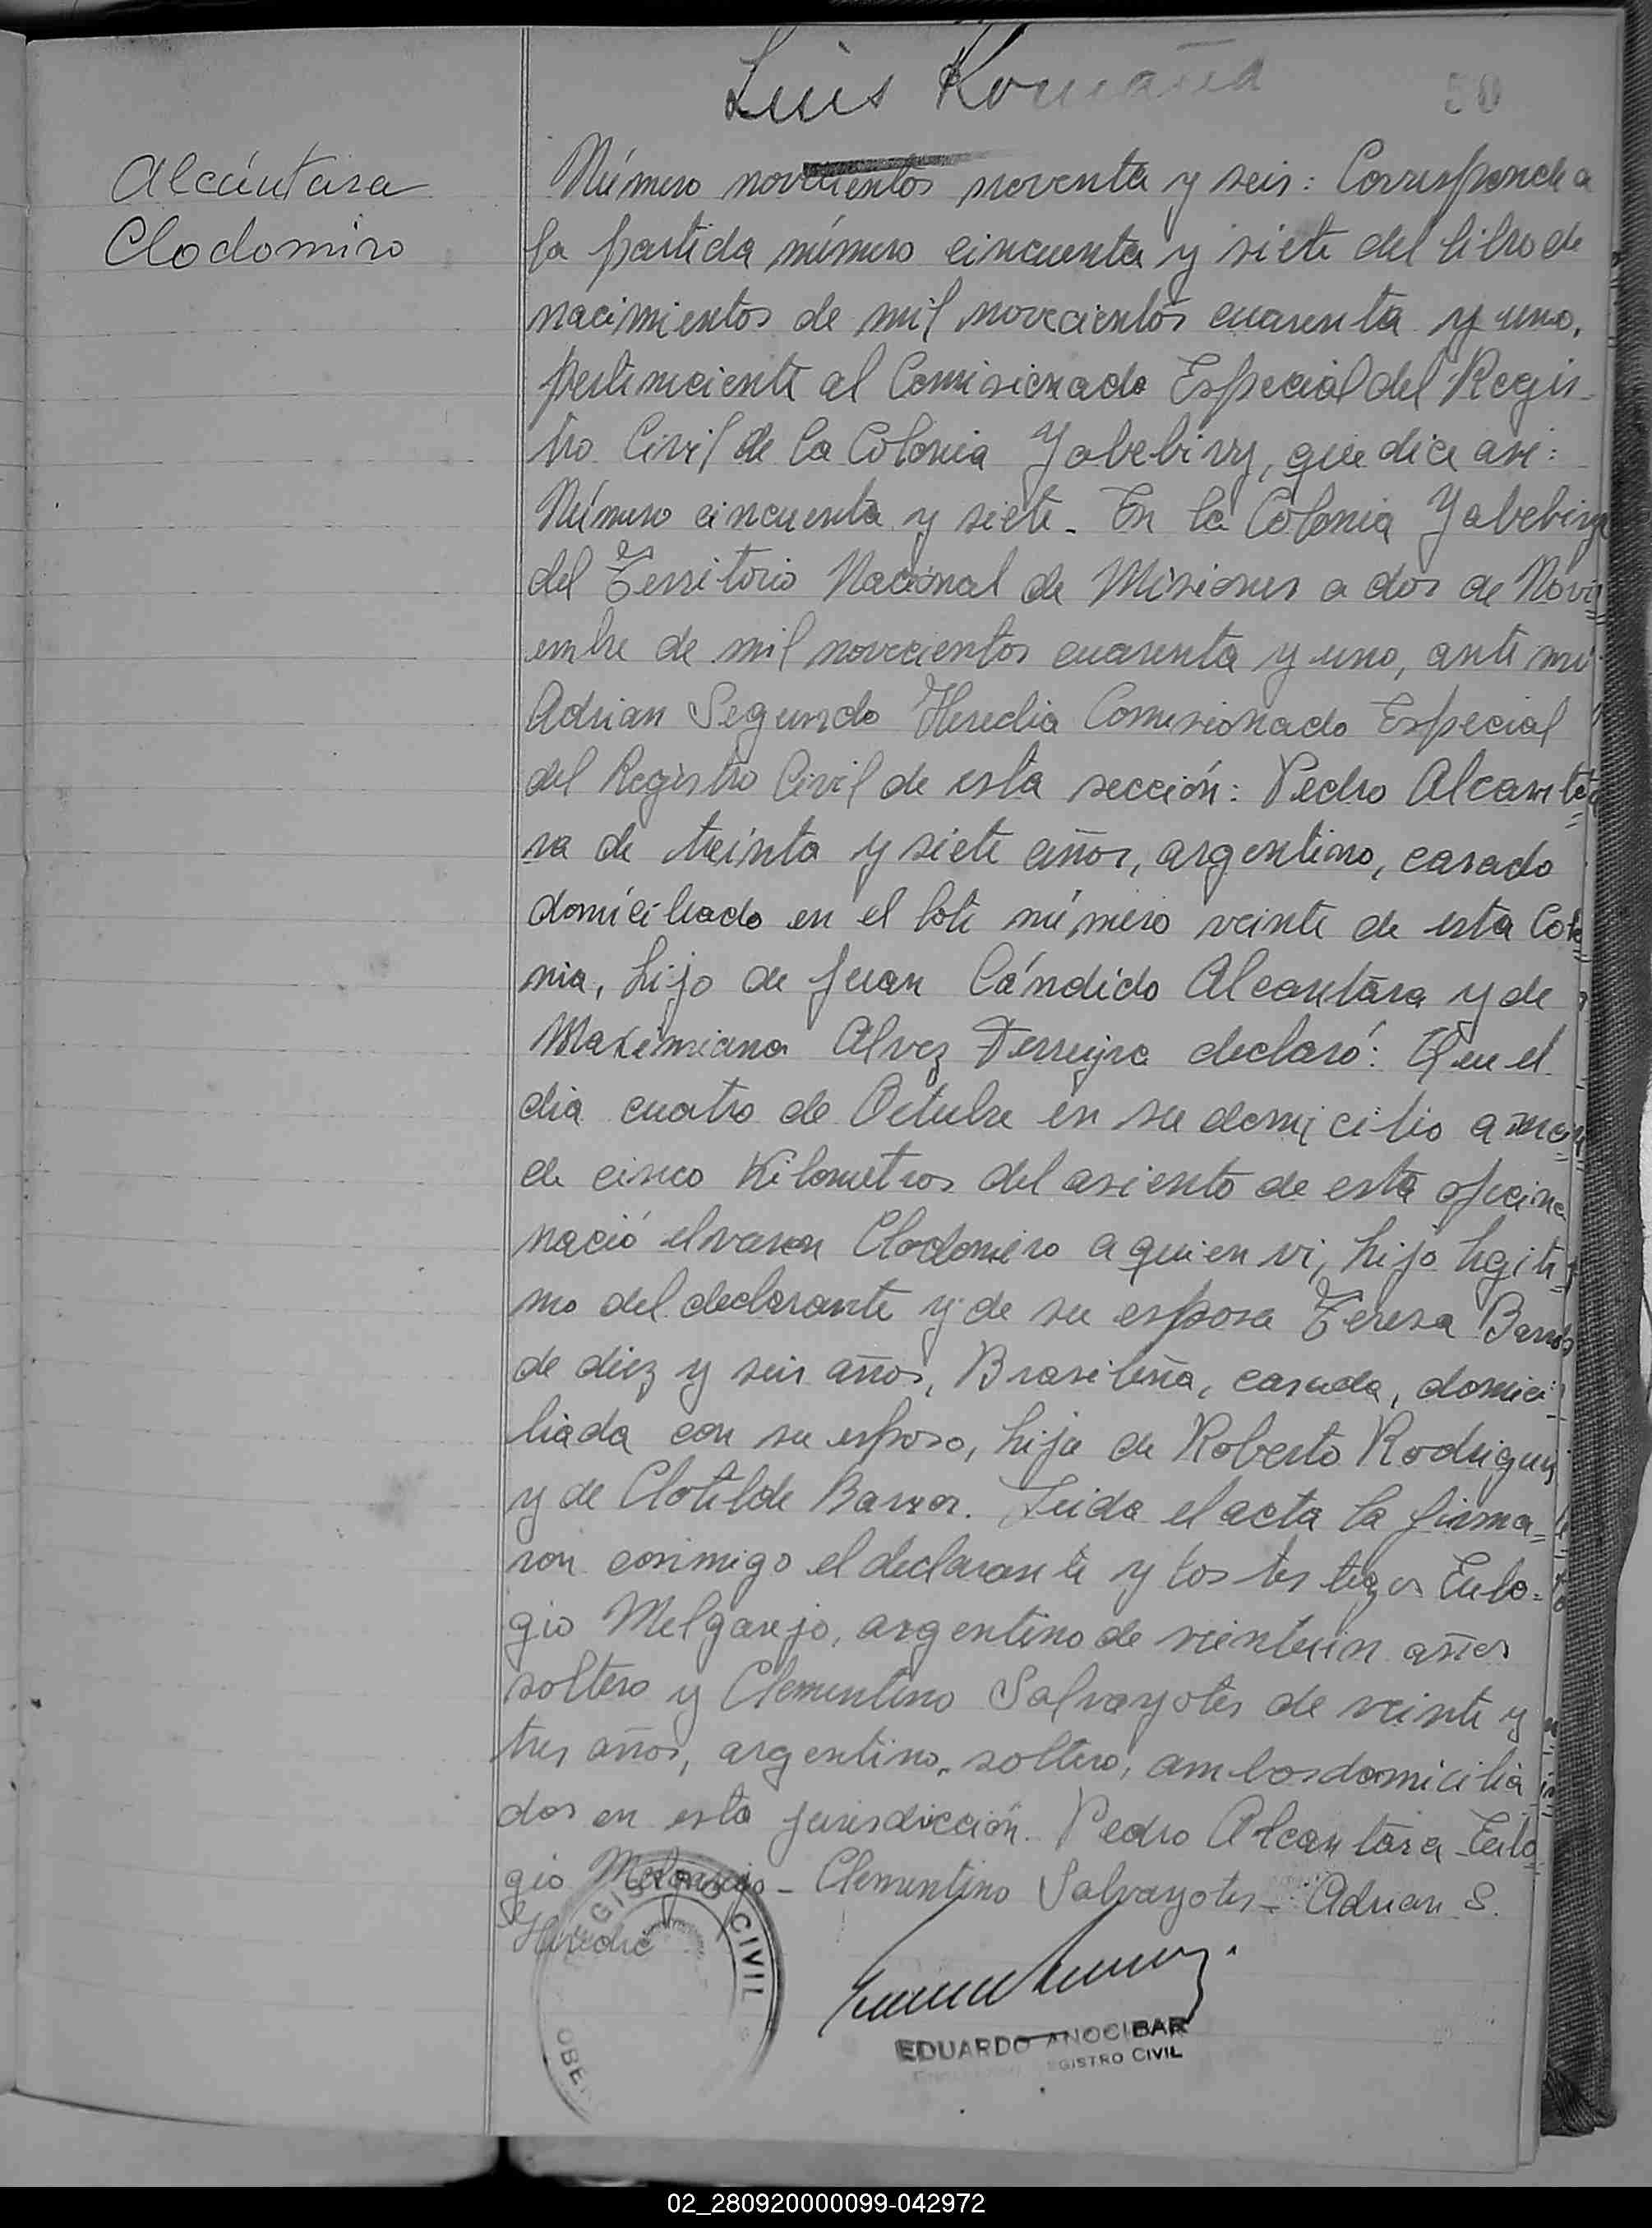 Luis Romaña
50
Alcántara
Clodomiro
Número novecientos noventa y seis: Corresponde a
la partida número cincuenta y siete del libro de
nacimientos de mil novecientos cuarenta y uno,
perteneciente al Comisionado Especial del Regis-
tro Civil de la Colonia Yabebiry, que dice asi:
Número cincuenta y siete - En la Colonia Yabebiry
del Territorio Nacional de Misiones a dos de Novi=
embre de mil novecientos cuarenta y uno, ante mi
Adrian Segundo Heredia Comisionado Especial
del Registro Civil de esta sección: Pedro Alcanta=
ra de treinta y siete años, argentino, casado
domiciliado en el lote número veinte de esta Colo=
nia, hijo de Juan Cándido Alcantara y de
Maximiana Alvez Ferreyra declaró: Que el
dia cuatro de Octubre en su domicilio a mas
de cinco Kilometros del asiento de esta oficina
nació el varon Clodomiro a quien vi, hijo legiti=
mo del declarante y de su esposa Teresa Barros
de diez y seis años, Brasileña, casada, domici=
liada con su esposo, hija de Roberto Rodriguez
y de Clotilde Barros. Leida el acta la firma=
ron conmigo el declarante y los testigos Eulo=
gio Melgarejo, argentino de veintiun años
soltero y Clementino Salvayotes de veinte y
tres años, argentino, soltero, ambos domicilia
dos en esta jurisdicción. Pedro Alcantara - Eulo=
gio Melgarejo - Clementino Salvayotes - Adrian S.
Heredia
REGISTRO CIVIL
OBE
EDUARDO ANOCIBAR
REGISTRO CIVIL
02_280920000099-042972